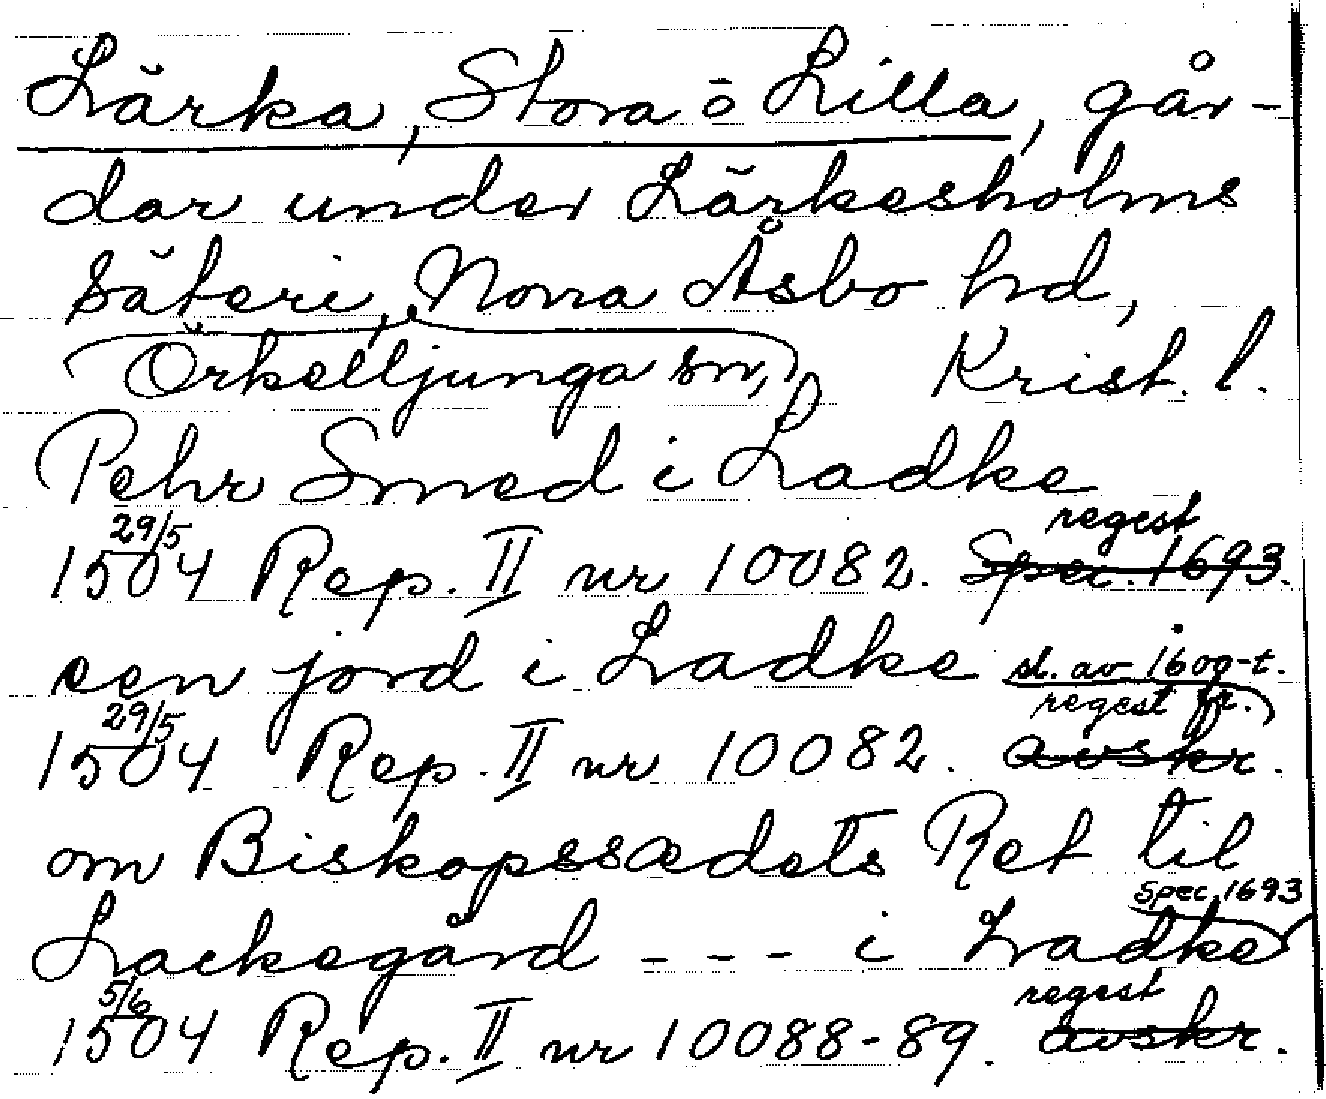 Lärka, Stora o Lilla, går-
dar under Lärkesholms
säteri, Norra Åsbo hd,
Örkelljunga sn, Krist. l.
Pehr Smed i Ladke
29/5 regest
1504 Rep. II nr 10082. Spec. 1693.
een jord i Ladke sl. av 1600-t.
29/5 regest fr.
1504 Rep. II nr 10082. avskr.
om Biskopssædets Ret til
Spec. 1693
Lackegård --- i Ladke
5/6 regest
1504 Rep. II nr 10088-89. avskr.